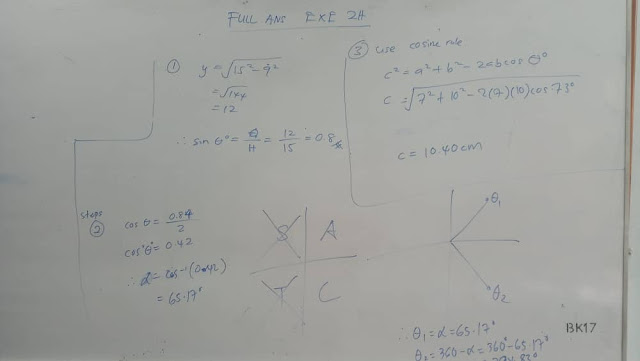 FULL ANS EXE 2H
①
y = √15² - 9²
= √144
= 12
∴ sin θ° = O/H = 12/15 = 0.8
③ use cosine rule
c² = a² + b² - 2ab cos θ°
c = √7² + 10² - 2(7)(10) cos 73°
c = 10.40 cm
steps
②
cos θ = 0.84/2
cos θ° = 0.42
∴ α = cos⁻¹(0.42)
= 65.17°
S A
T C
θ₁
θ₂
∴ θ₁ = α = 65.17°
θ₂ = 360 - α = 360° - 65.17°
BK17